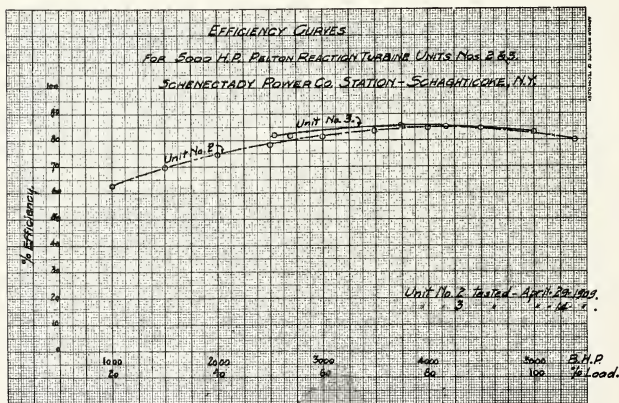 EFFICIENCY CURVES
FOR 5000 H.P. PELTON REACTION TURBINE UNITS NOS. 2 & 3.
SCHENECTADY POWER CO. STATION - SCHAGHTICOKE, N.Y.
ARMOUR INSTITUTE OF TECHNOLOGY
100
90
80
70
60
50
40
30
20
10
0
% Efficiency.
Unit No. 3.
Unit No. 2
Unit No. 2 tested - April - 29 - 1909.
" " 3 " " - 14 - "
1000 2000 3000 4000 5000 B.H.P.
20 40 60 80 100 % Load.